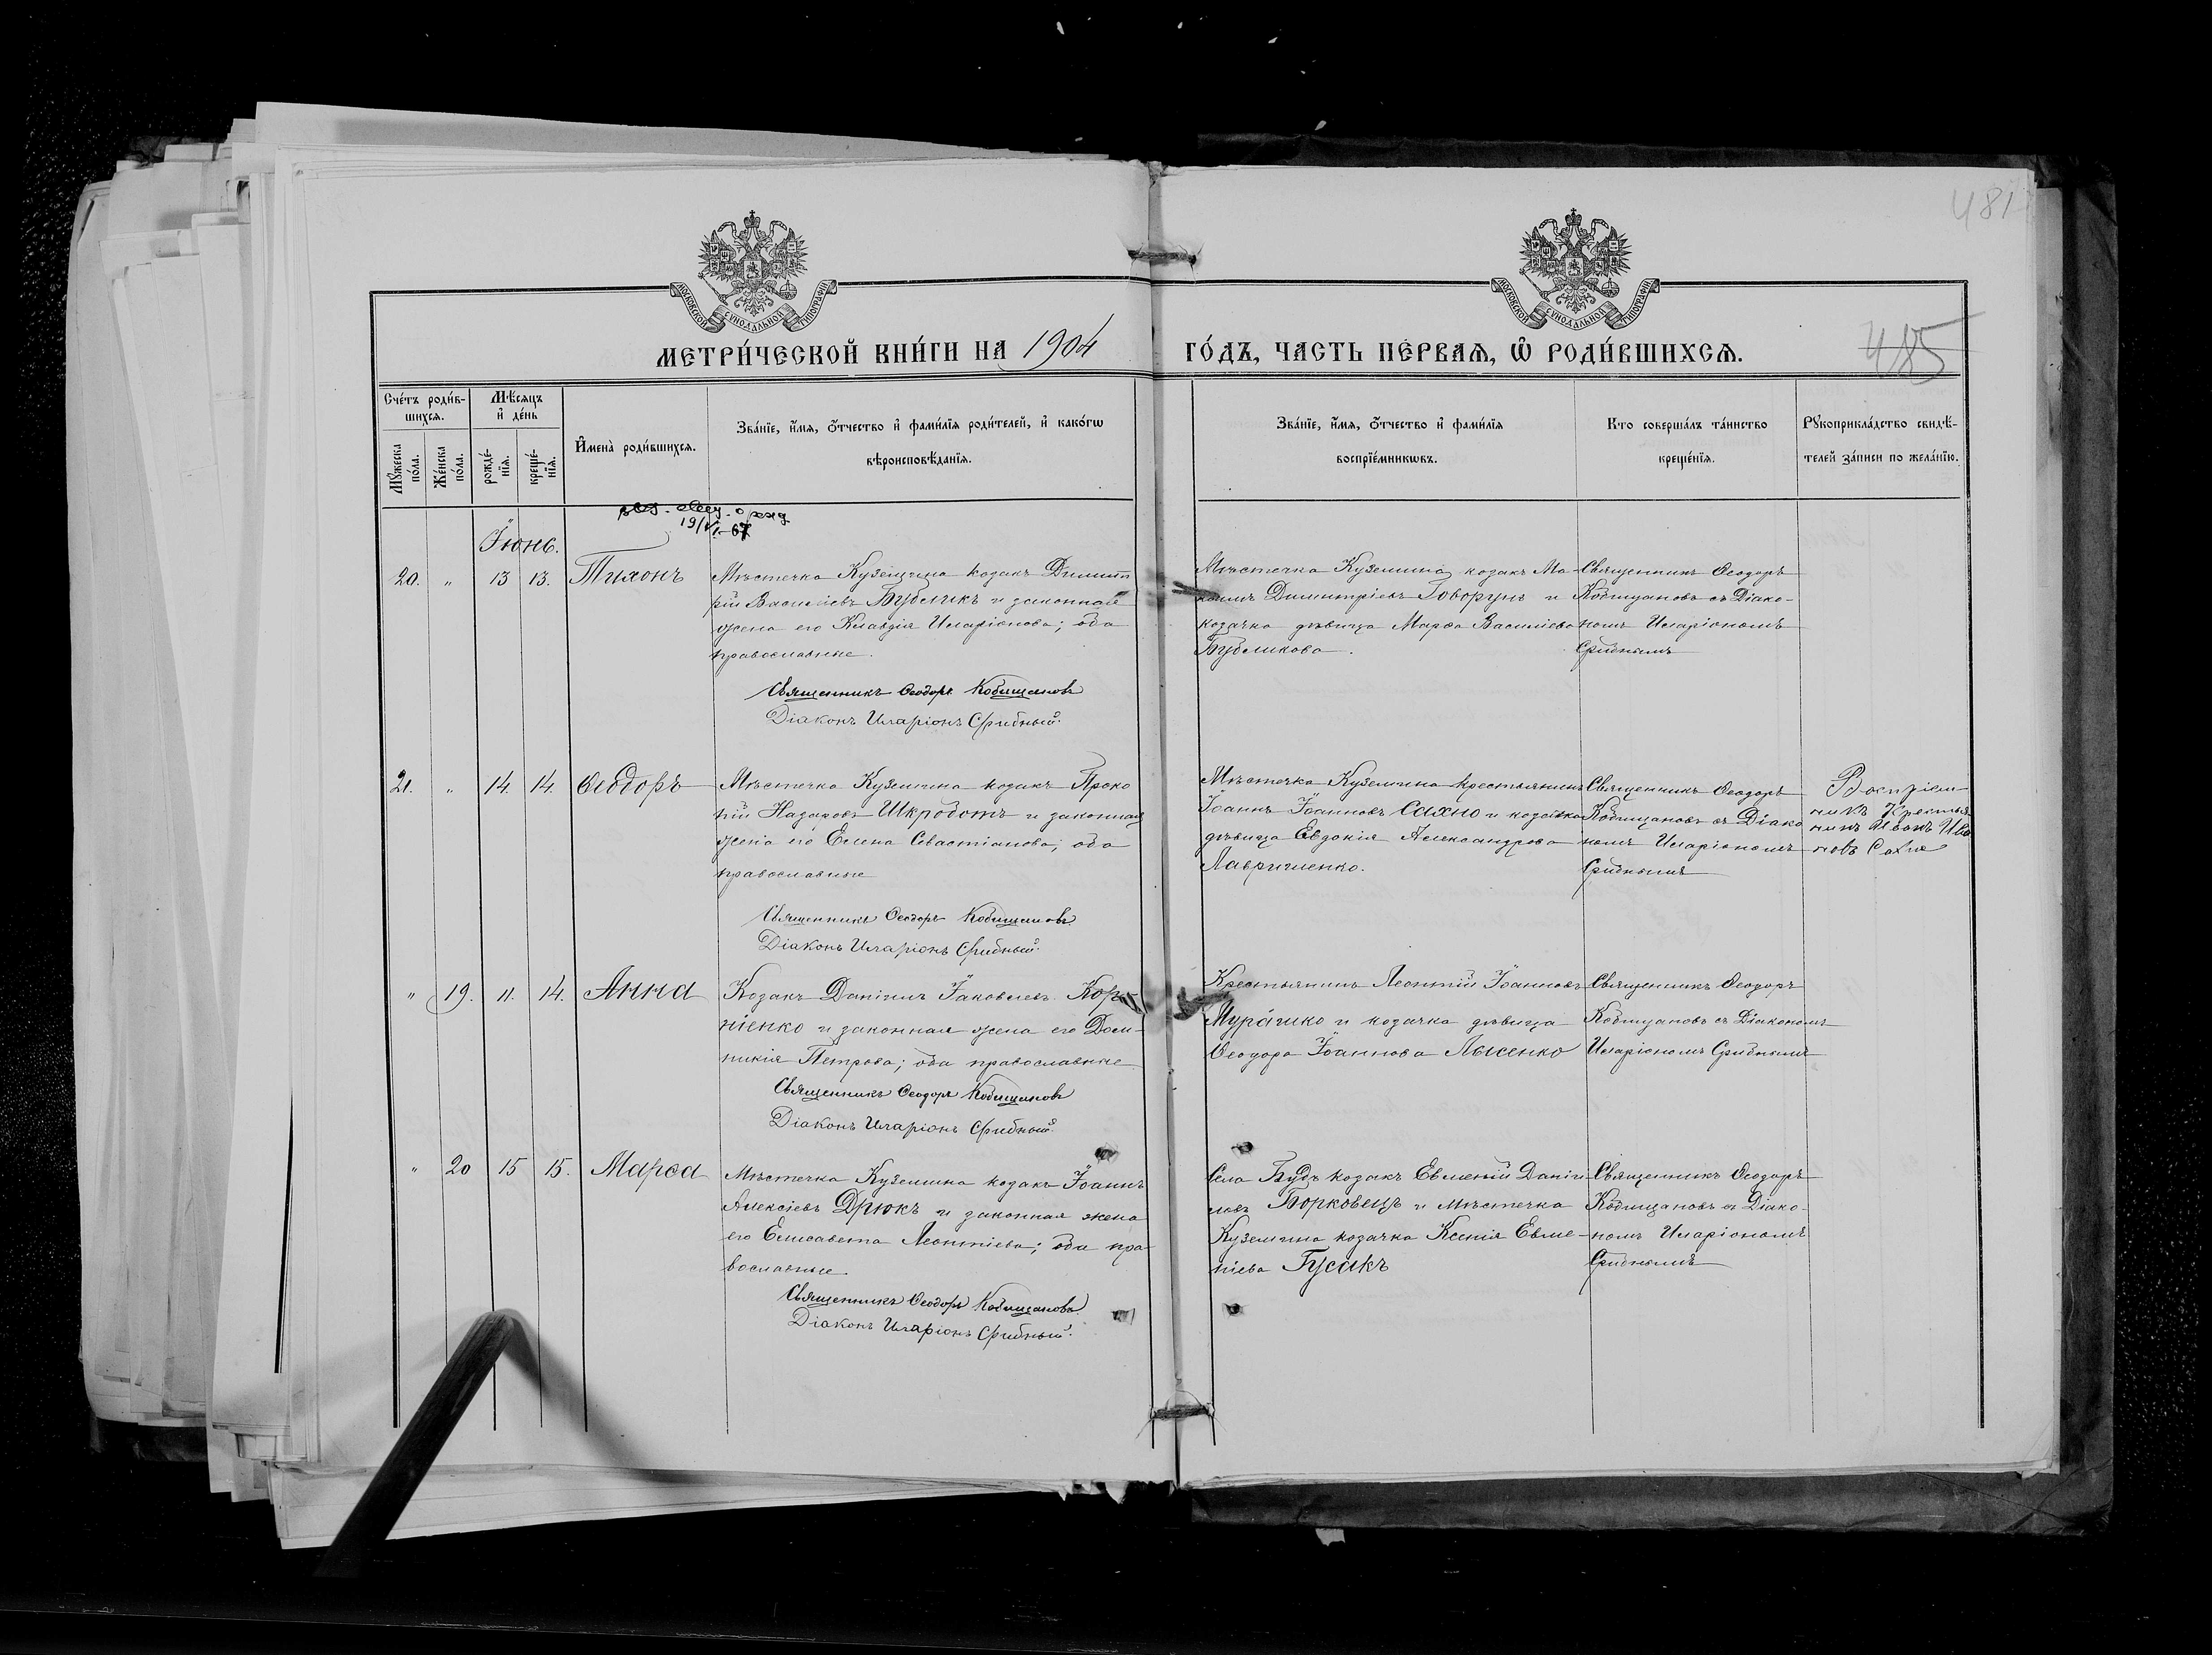 481
МОСКОВСКОЙ СѴНОДАЛЬНОЙ ТИПОГРАФІИ
МОСКОВСКОЙ СѴНОДАЛЬНОЙ ТИПОГРАФІИ
МЕТРИ́ЧЕСКОЙ КНИ́ГИ НА 1904
ГО́ДЪ, ЧАСТЬ ПЕ́РВАѦ, Ѡ҆ РОДИ́ВШИХСѦ.
485
Сче́тъ роди́в-
шихсѧ.
Мѣ́сѧцъ
и҆ де́нь
Мꙋ́жеска
по́ла.
Же́нска
по́ла.
рожде́-
нїѧ.
креще́-
нїѧ.
И҆мена̀ роди́вшихсѧ.
Зва́нїе, и҆́мѧ, ѻ҆́тчество и҆ фами́лїѧ роди́телей, и҆ како́гѡ
вѣроисповѣ́данїѧ.
Зва́нїе, и҆́мѧ, ѻ҆́тчество и҆ фами́лїѧ
воспрїе́мникѡвъ.
Кто соверша́лъ та́инство
креще́нїѧ.
Рꙋкоприкла́дство свидѣ́-
телей за́писи по жела́нїю.
Іюнь.
20. " 13 13. Тихонъ
Мѣстечка Куземина козакъ Димит
рій Василіевъ Бубликъ и законная
жена его Клавдія Иларіонова; оба
православные.
Священникъ Ѳеодоръ Кобищановъ
Діаконъ Иларіонъ Срибный.
Мѣстечка Куземина козакъ Ма-
Димитріевъ Говорунъ и
козачка дѣвица Марѳа Василіева
Бубликова.
Священникъ Ѳеодоръ
Кобищановъ съ Діако-
номъ Иларіономъ
Срибнымъ
21. " 14. 14. Ѳеодоръ
Мѣстечка Куземина козакъ Проко
пій Назаровъ Шкработъ и законная
жена его Елена Севастіанова; оба
православные
Священникъ Ѳеодоръ Кобищановъ
Діаконъ Иларіонъ Срибный.
Мѣстечка Куземина крестьянинъ
Іоаннъ Іоанновъ Сахно и козачка
дѣвица Евдокія Александрова
Лавриченко.
Священникъ Ѳеодоръ
Кобищановъ съ Діако
номъ Иларіономъ
Срибнымъ
Воспріем
никъ Крестья
нинъ Иванъ Ива
новъ Сахно
" 19. 11. 14. Анна
Козакъ Даніилъ Іаковлевъ Кор-
ніенко и законная жена его Дом-
никія Петрова; оба православные
Священникъ Ѳеодоръ Кобищановъ
Діаконъ Иларіонъ Срибный.
Крестьянинъ Леонтій Іоанновъ
Мурашко и козачка дѣвица
Ѳеодора Іоаннова Лысенко
Священникъ Ѳеодоръ
Кобищановъ съ Діакономъ
Иларіономъ Срибнымъ
" 20 15 15. Марѳа
Мѣстечка Куземина козакъ Іоаннъ
Алексіевъ Дрюкъ и законная жена
его Елисавета Леонтіева; оба пра-
вославные
Священникъ Ѳеодоръ Кобищановъ
Діаконъ Иларіонъ Срибный.
Села Будъ козакъ Евменій Даніи-
ловъ Борковецъ и мѣстечка
Куземина козачка Ксенія Евме-
ніева Гусакъ
Священникъ Ѳеодоръ
Кобищановъ съ Діако-
номъ Иларіономъ
Срибнымъ